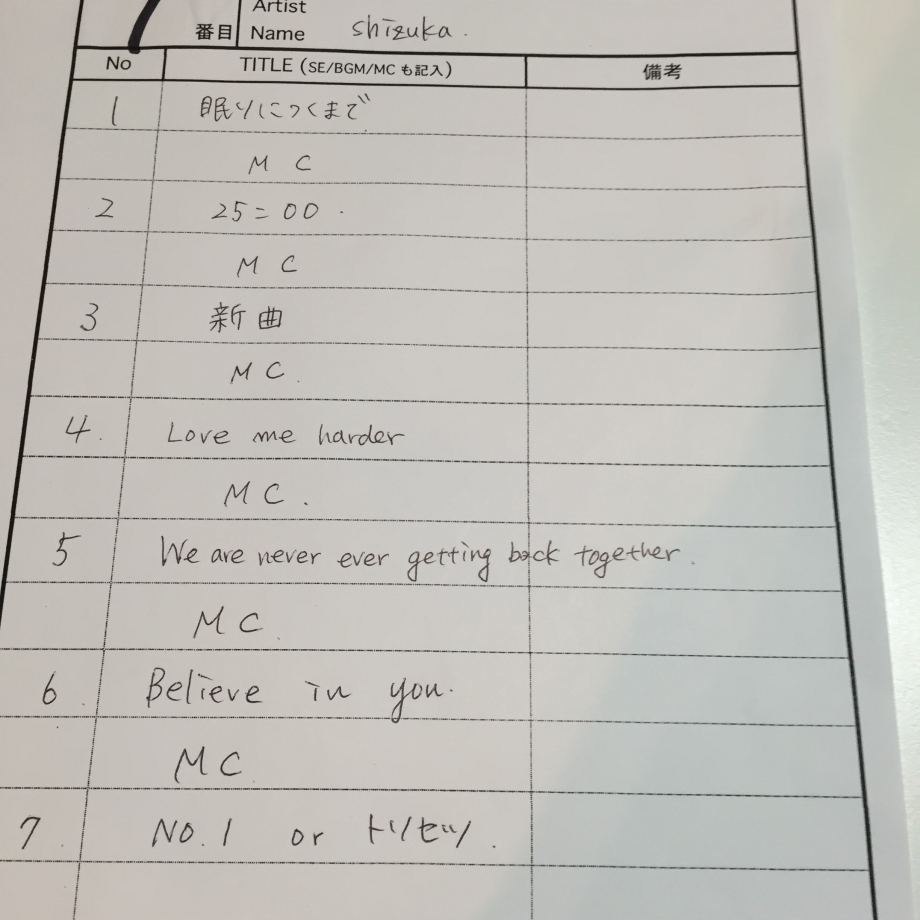 Artist
番目 Name shizuka.
No TITLE (SE/BGM/MC も記入) 備考
1 眠りにつくまで
MC
2 25=00.
MC
3 新曲
MC.
4. Love me harder
MC.
5 We are never ever getting back together.
MC.
6. Believe in you.
MC.
7. NO.1 or トリセツ.